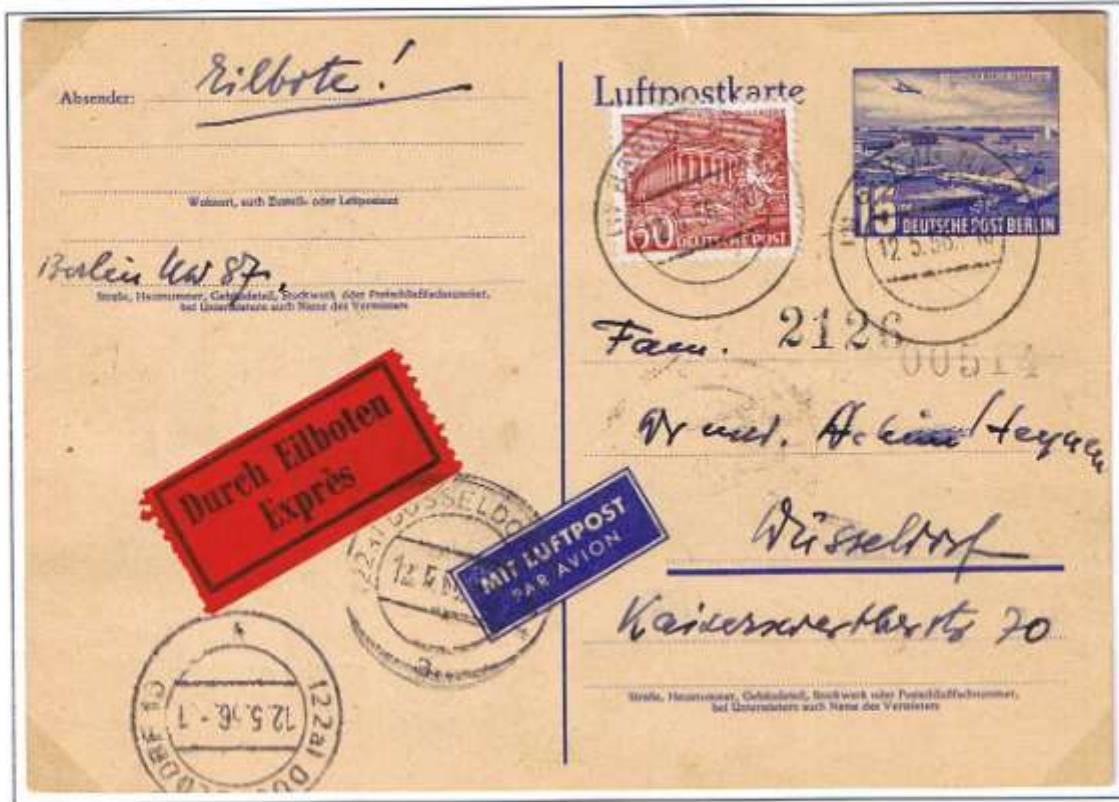 Absender: Eilbote!
Wohnort, auch Zustell- oder Leitpostamt
Berlin NW 87,
Straße, Hausnummer, Gebäudeteil, Stockwerk oder Postschließfachnummer,
bei Untermietern auch Name des Vermieters
Durch Eilboten
Exprès
MIT LUFTPOST
PAR AVION
(22a) DÜSSELDORF
(22a) DÜSSELDORF 10
12.5.56.-1
Luftpostkarte
DEUTSCHE POST
15 DEUTSCHE POST BERLIN
12.5.56.
Fam. 2126
Dr med. Achim Heynen
Düsseldorf
Kaiserswertherstr 70
Straße, Hausnummer, Gebäudeteil, Stockwerk oder Postschließfachnummer,
bei Untermietern auch Name des Vermieters